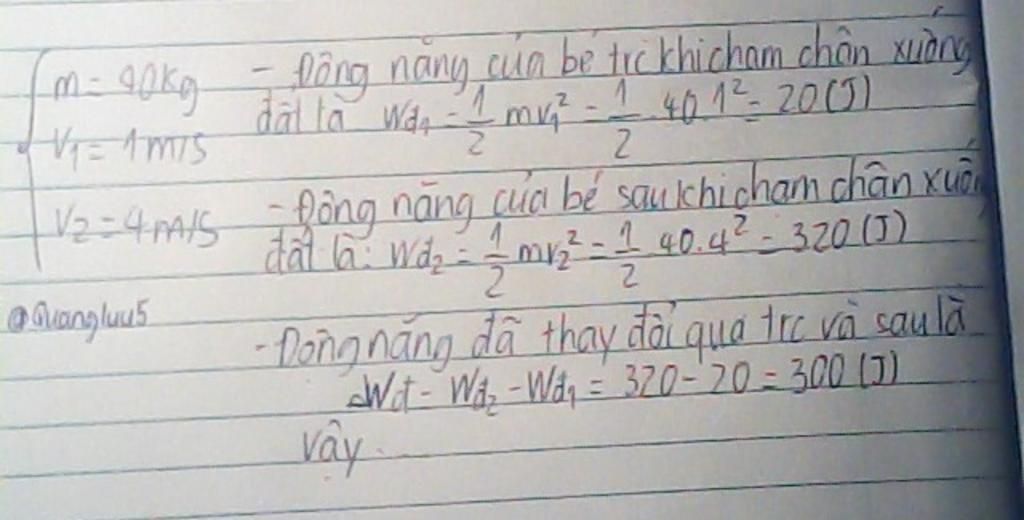 m = 40kg
V₁ = 1m/s
V₂ = 4m/s
- Động năng của bé trc khi chạm chân xuống
đất là Wd₁ = 1/2 mv₁² = 1/2 .40.1² = 20(J)
- Động năng của bé sau khi chạm chân xuố
đất là: Wd₂ = 1/2 mv₂² = 1/2 40.4² = 320(J)
@Quangluu5
- Động năng đã thay đổi qua trc và sau là
△Wd = Wd₂ - Wd₁ = 320 - 20 = 300(J)
Vậy.